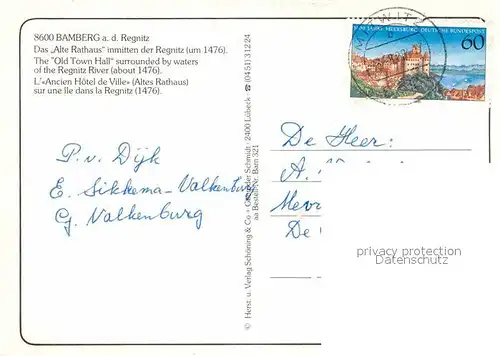 8600 BAMBERG a. d. Regnitz
Das „Alte Rathaus" inmitten der Regnitz (um 1476).
The "Old Town Hall" surrounded by waters
of the Regnitz River (about 1476).
L'«Ancien Hôtel de Ville» (Altes Rathaus)
sur une île dans la Regnitz (1476).
P. v. Dijk
E. Sikkema-Valkenburg
G. Valkenburg
© Herst. u. Verlag Schöning & Co + Gebrüder Schmidt · 2400 Lübeck · ☎ (04 51) 3 12 24
aa Bestell-Nr. Bam 321
JAHRE MEERSBURG DEUTSCHE BUNDESPOST
60
WITZ
De Heer:
A.
Mevr
De
privacy protection
Datenschutz